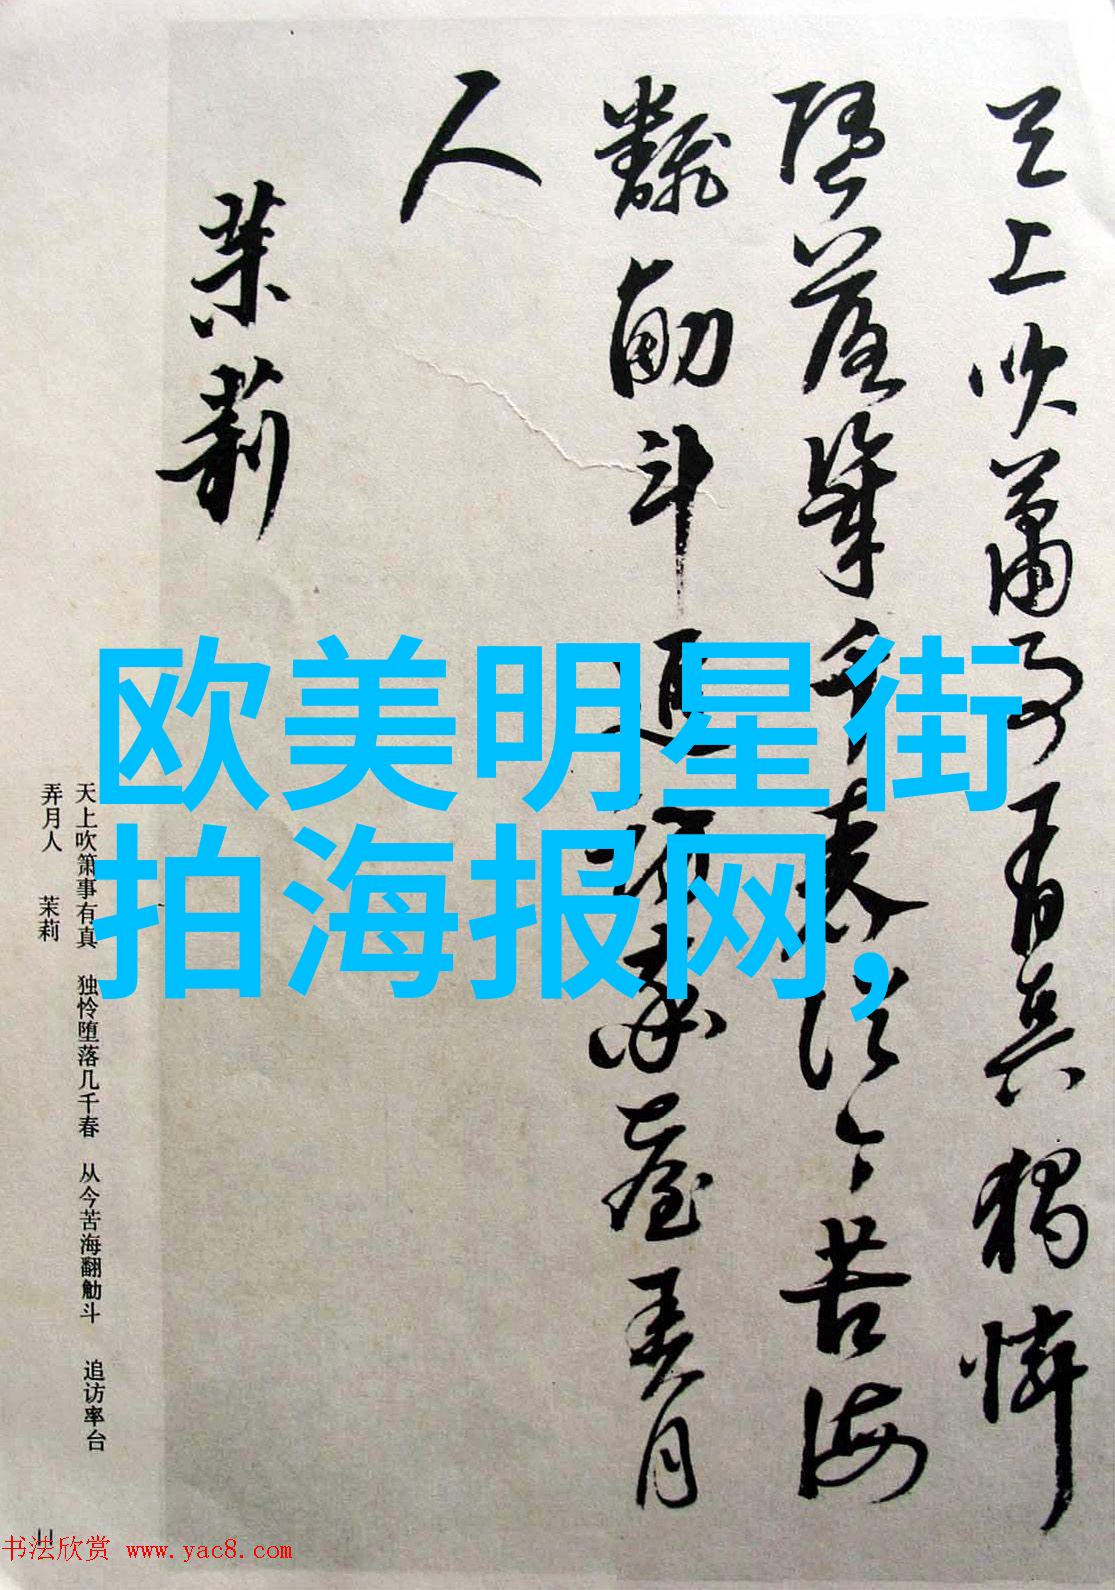 天上吹簫事有真獨憐
墮落幾千春從今苦海
翻觔斗追訪秦臺弄月
人
茉莉
欧美明星街
拍海报网,
天上吹箫事有真 独怜堕落几千春 从今苦海翻觔斗 追访率台
弄月人 茉莉
11
书法欣赏 www.yac8.com